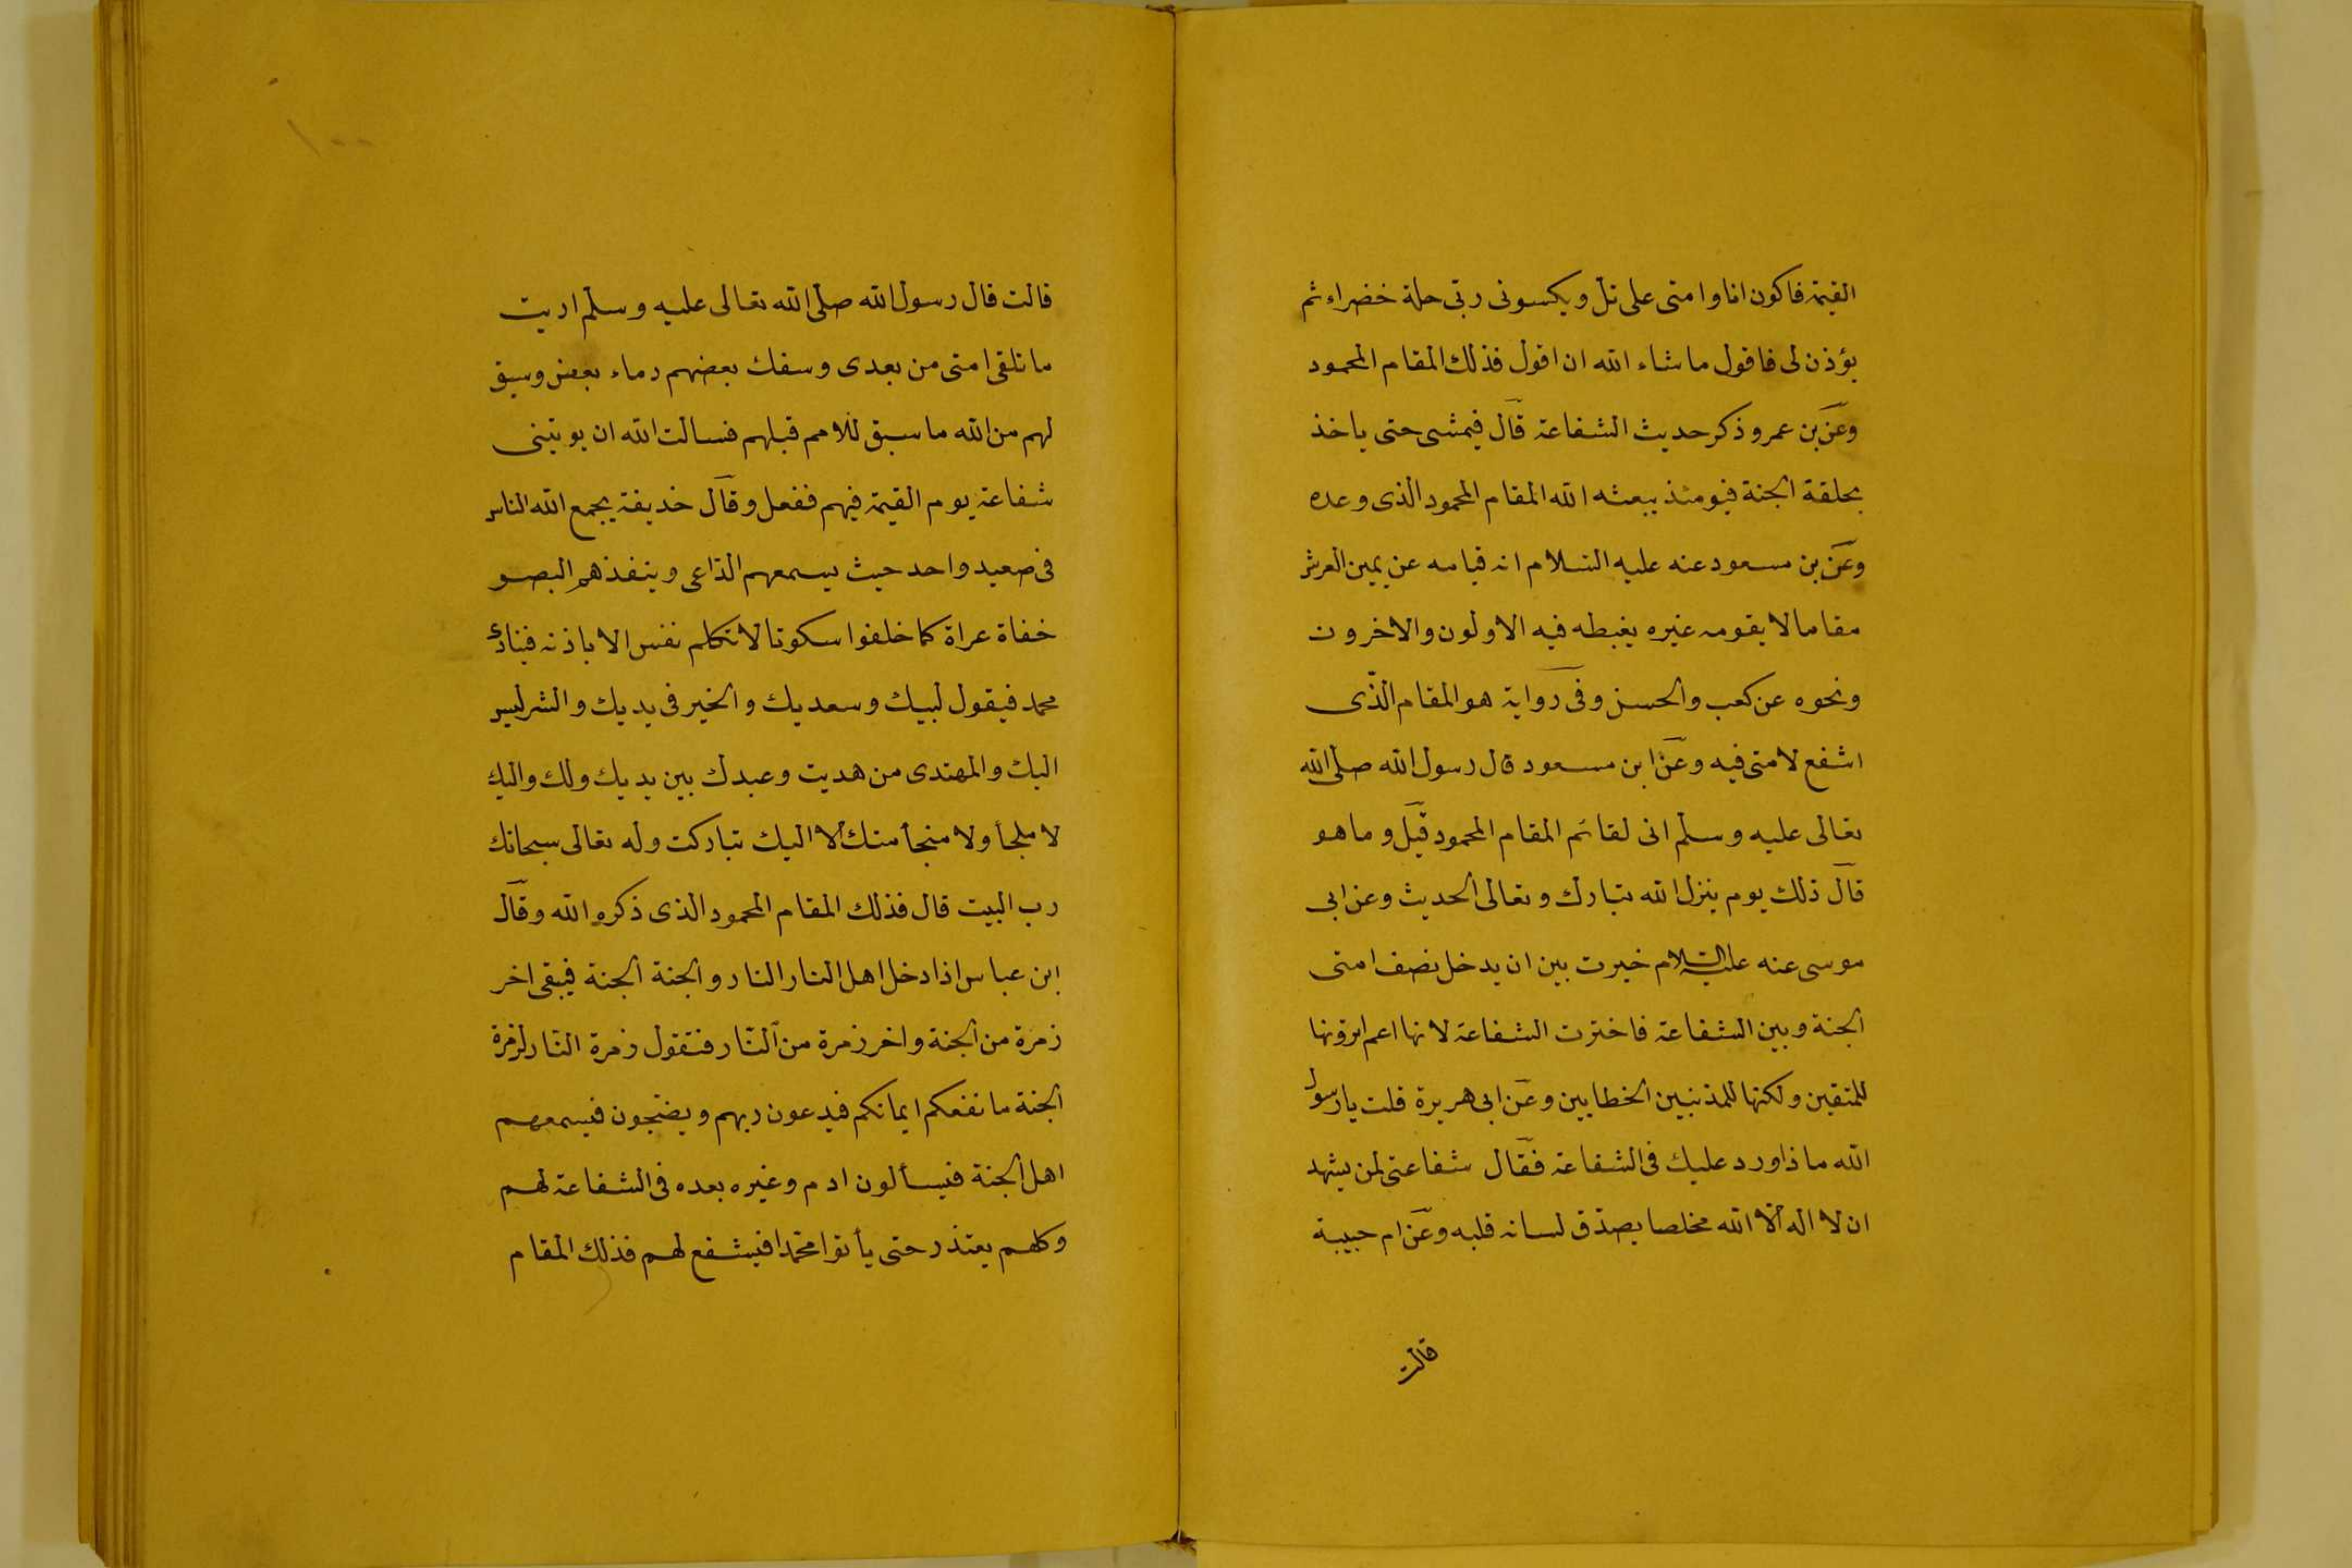 القيمة فاكون انا وامتى على تل ويكسونى ربى حلة خضراء ثم
يؤذن لى فاقول ما شاء الله ان اقول فذلك المقام المحمود
وعن بن عمرو ذكر حديث الشفاعة قال فيمشى حتى ياخذ
بحلقة الجنة فيومئذ يبعثه الله المقام المحمود الذى وعده
وعن بن مسعود عنه عليه السلام انه قيامه عن يمين العرش
مقاما لا يقومه غيره يغبطه فيه الاولون والاخرون
ونحوه عن كعب والحسن وفى رواية هو المقام الذى
اشفع لامتى فيه وعن ابن مسعود قال رسول الله صلى الله
تعالى عليه وسلم انى لقائم المقام المحمود قيل وما هو
قال ذلك يوم ينزل الله تبارك وتعالى الحديث وعن ابى
موسى عنه عليه السلام خيرت بين ان يدخل نصف امتى
الجنة وبين الشفاعة فاخترت الشفاعة لانها اعم اترونها
للمتقين ولكنها للمذنبين الخطايين وعن ابى هريرة قلت يا رسول
الله ماذا ورد عليك فى الشفاعة فقال شفاعتى لمن يشهد
ان لا اله الا الله مخلصا يصدق لسانه قلبه وعن ام حبيبة
قالت
١٠٠
قالت قال رسول الله صلى الله تعالى عليه وسلم اريت
ما تلقى امتى من بعدى وسفك بعضهم دماء بعض وسبق
لهم من الله ما سبق للامم قبلهم فسالت الله ان يوتينى
شفاعة يوم القيمة فيهم ففعل وقال خديفة يجمع الله الناس
فى صعيد واحد حيث يسمعهم الداعى وينفذهم البصر
خفاة عراة كما خلقوا سكوتا لا تكلم نفس الا باذنه فينادى
محمد فيقول لبيك وسعديك والخير فى يديك والشر ليس
اليك والمهتدى من هديت وعبدك بين يديك ولك واليك
لا ملجأ ولا منجأ منك الا اليك تباركت وله تعالى سبحانك
رب البيت قال فذلك المقام المحمود الذى ذكره الله وقال
ابن عباس اذا دخل اهل النار النار والجنة الجنة فيبقى اخر
زمرة من الجنة واخر زمرة من النار فتقول زمرة النار لزمرة
الجنة ما نفعكم ايمانكم فيدعون ربهم ويضجون فيسمعهم
اهل الجنة فيسألون ادم وغيره بعده فى الشفاعة لهم
وكلهم يعتذر حتى يأتوا محمدا فيشفع لهم فذلك المقام